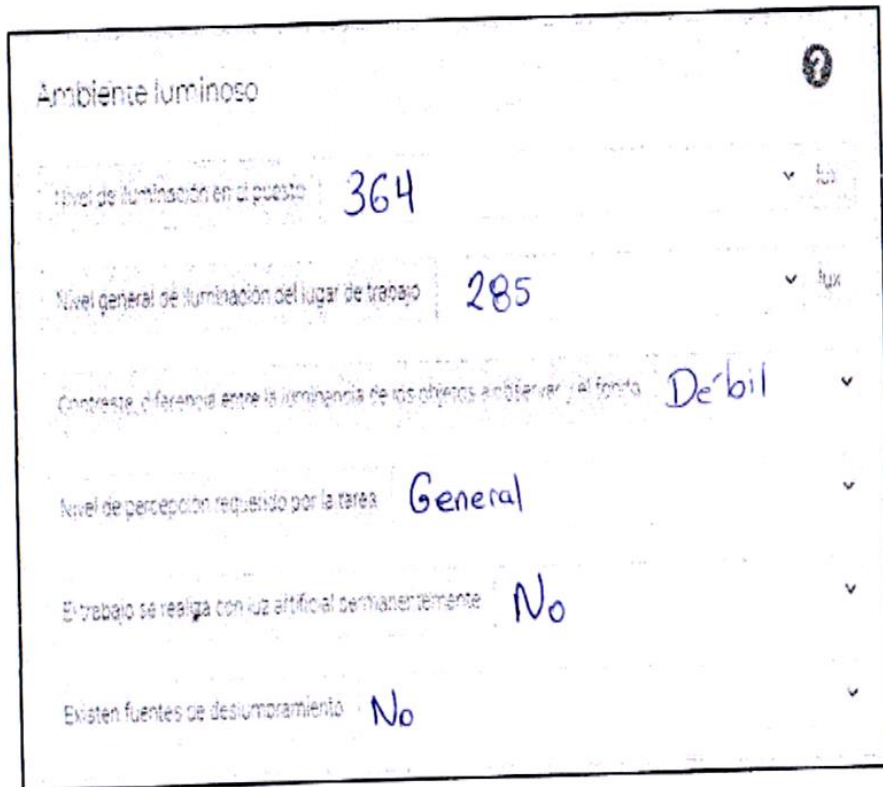 Ambiente luminoso ?
Nivel de iluminación en el puesto 364 lux
Nivel general de iluminación del lugar de trabajo 285 lux
Contraste, diferencia entre la luminancia de los objetos a observar y el fondo Débil
Nivel de percepción requerido por la tarea General
El trabajo se realiza con luz artificial permanentemente No
Existen fuentes de deslumbramiento No